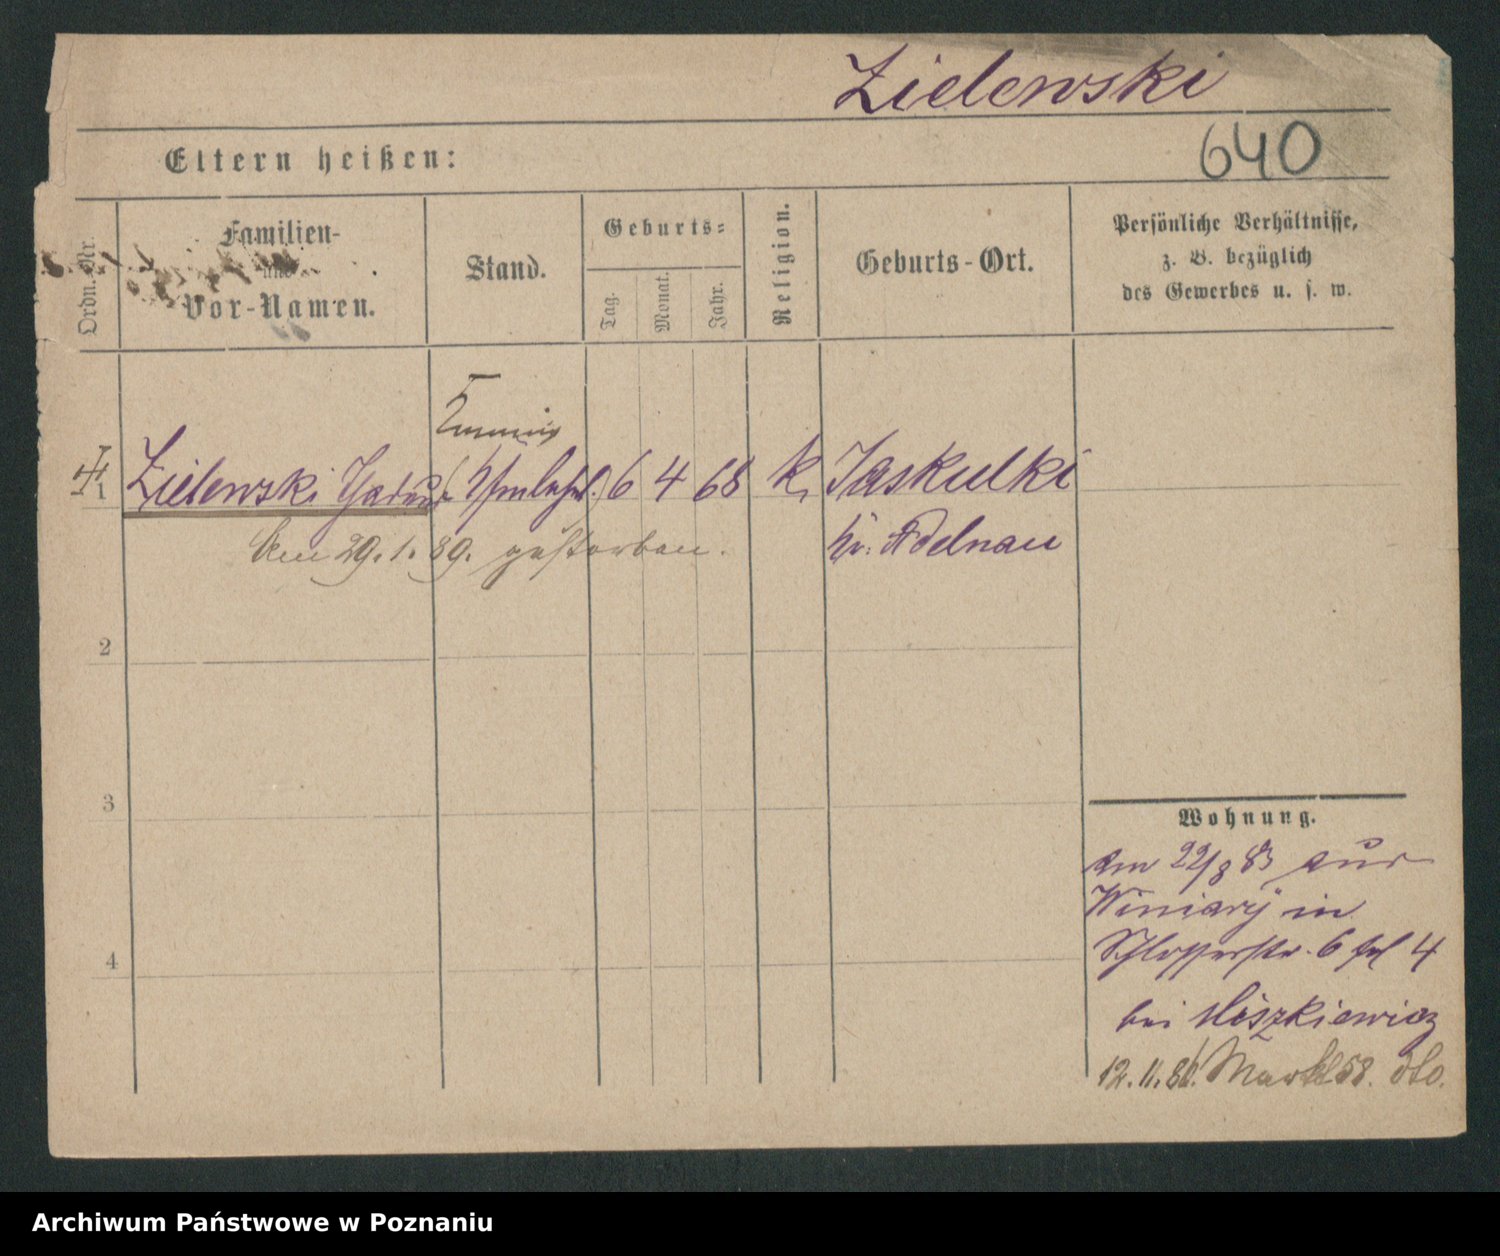 Zielewski
640
Eltern heißen:
Ordn. Nr.
Familien-
und
Vor-Namen.
Stand.
Geburts-
Tag.
Monat.
Jahr.
Religion.
Geburts-Ort.
Persönliche Verhältnisse,
z. B. bezüglich
des Gewerbes u. s. w.
1
Zielewski
6 4 68 k. Jaskulki
Kr. Adelnau
Am 29.1.89. gestorben.
2
3
4
Wohnung.
am 22/8 83 aus
Winiary in
Schlosserstr. 6 bei 4
bei Miszkiewicz
12.11.86. Markt 58. dto.
Archiwum Państwowe w Poznaniu